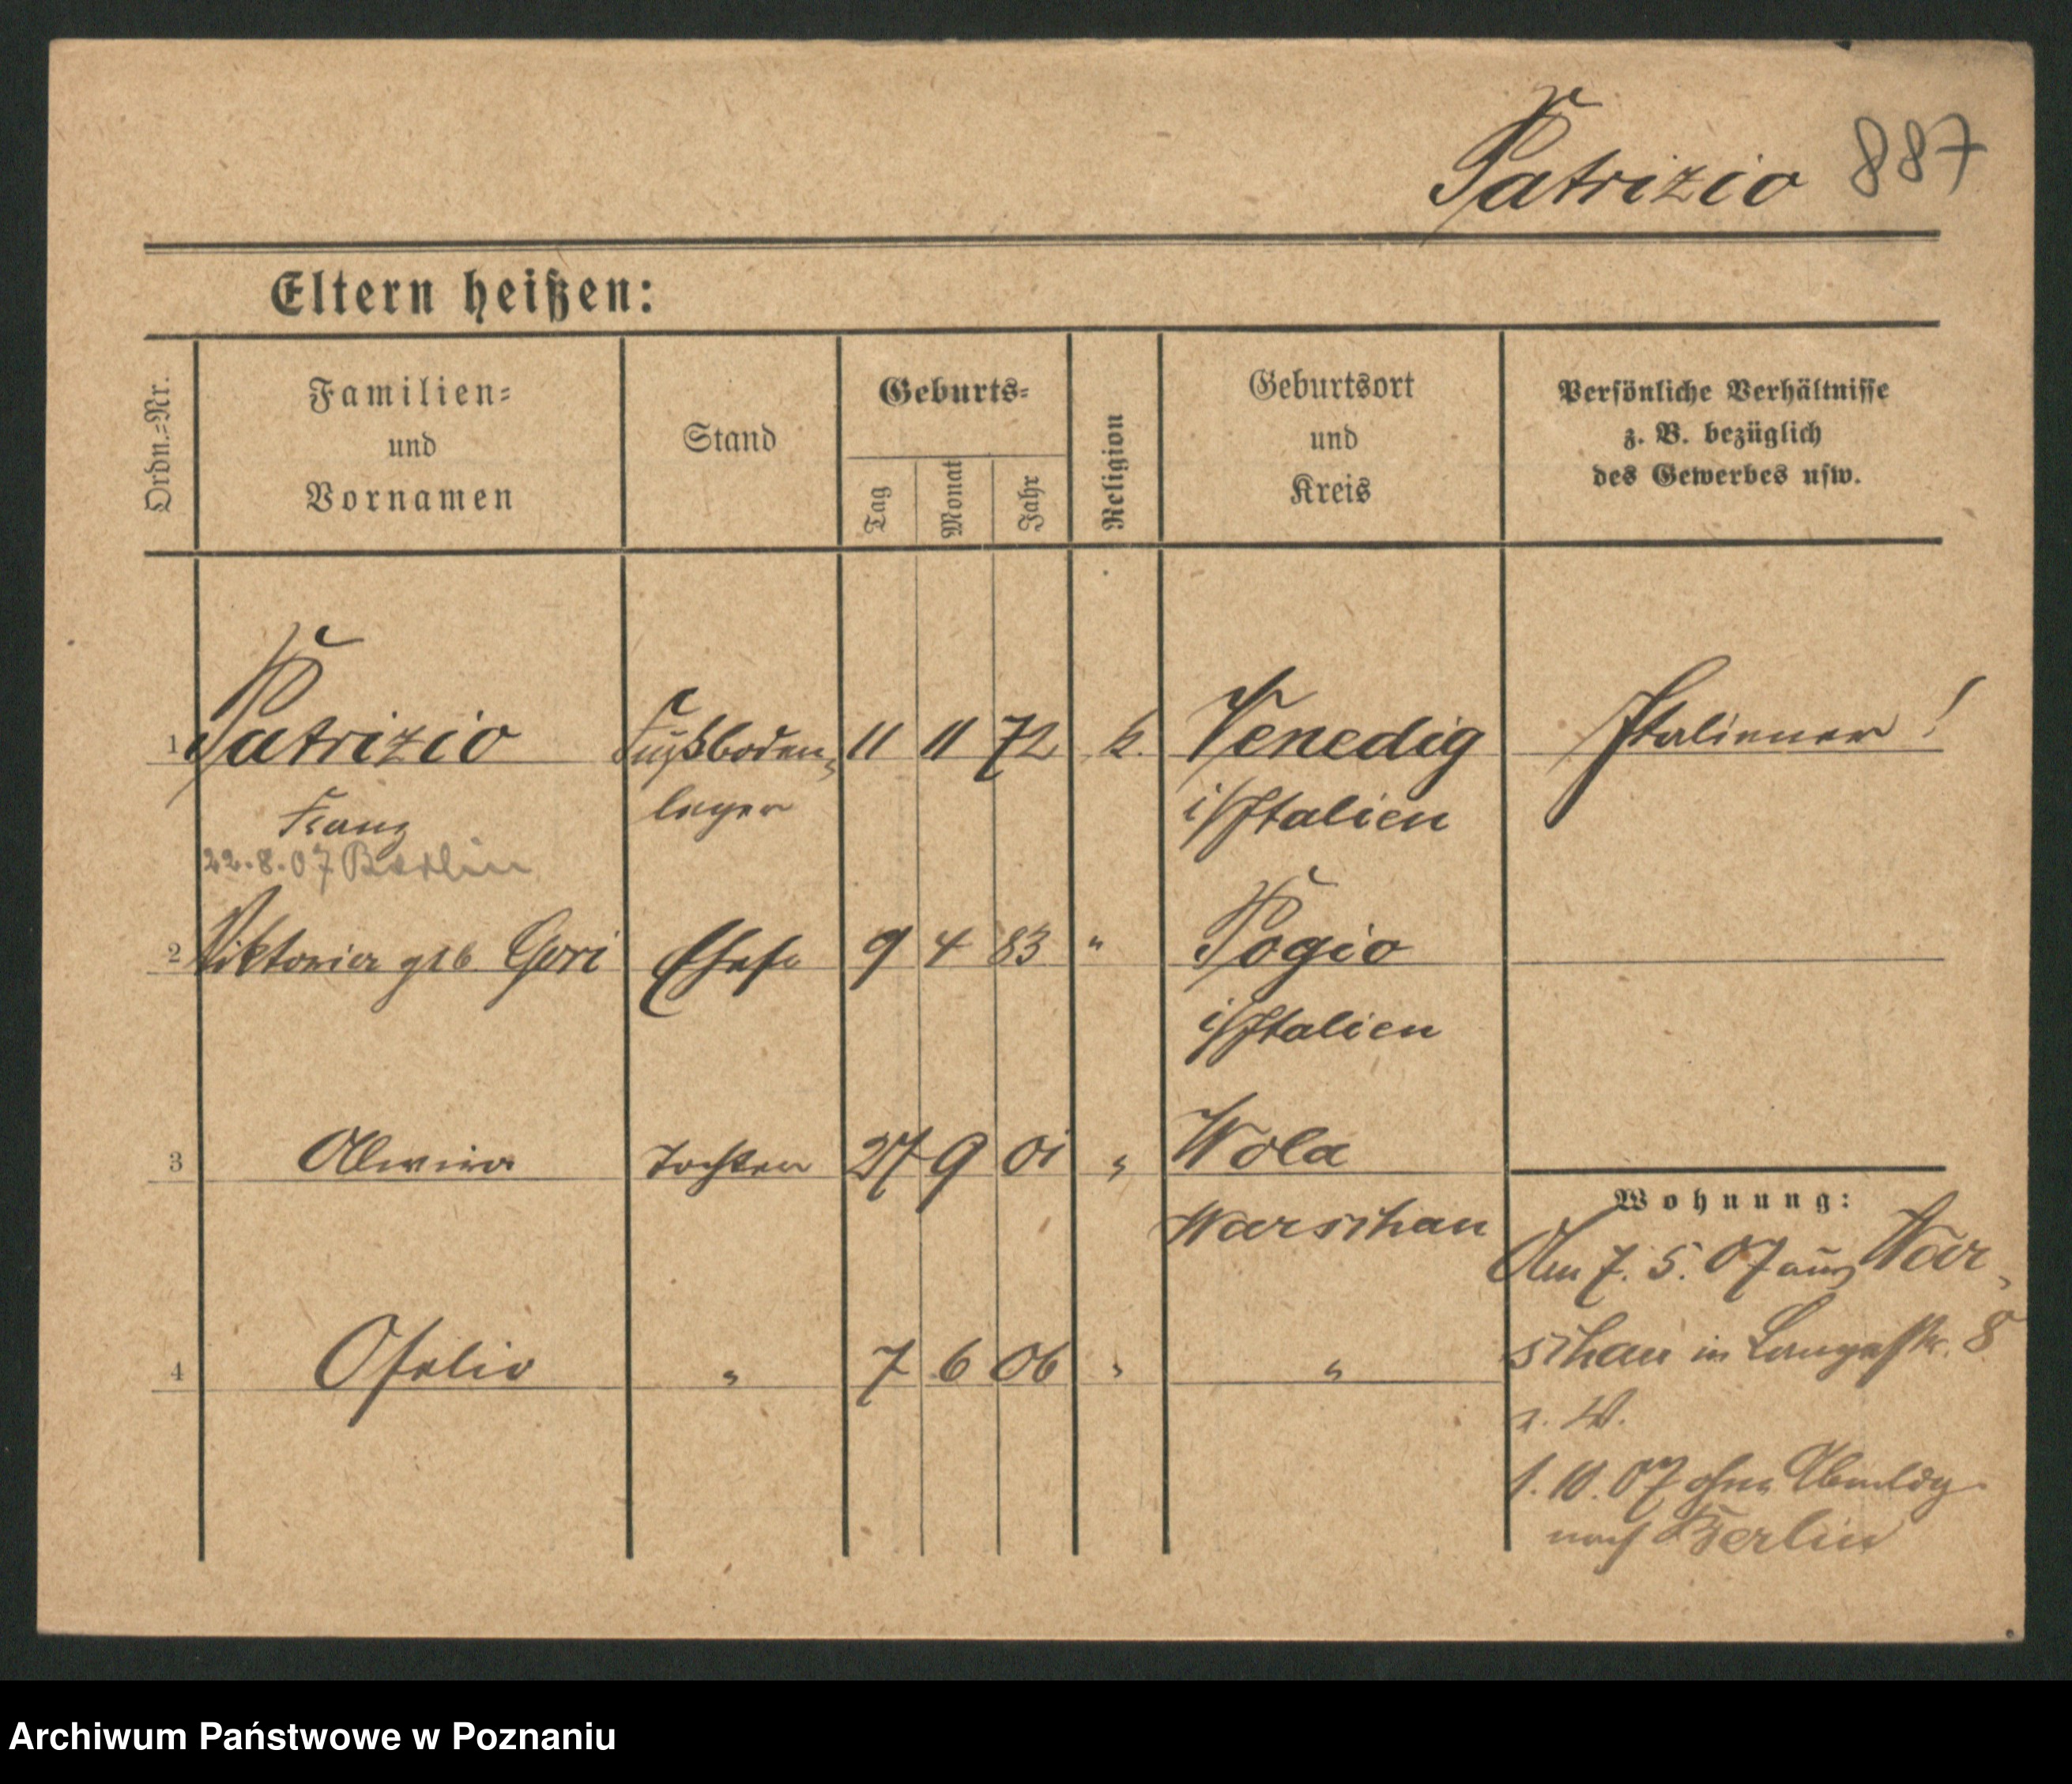 Patrizio 887
Eltern heißen:
Ordn.=Nr.
Familien=
und
Vornamen
Stand
Geburts=
Tag
Monat
Jahr
Religion
Geburtsort
und
Kreis
Persönliche Verhältnisse
z. B. bezüglich
des Gewerbes usw.
1 Patrizio Fußboden= 11 11 72 k. Venedig Italiener!
Franz leger i/Italien
22.8.07 Berlin
2 Viktoria geb. Gori Ehefr 9 4 83 " Pogio
i/Italien
3 Tochter 27 9 01 " Wola
Warschau
4 Ofelia " 7 6 06 " "
Wohnung:
Am 7. 5. 07 aus War=
schau in Langestr. 8
z. W.
1. 10. 07 ohne Abmldg.
nach Berlin
Archiwum Państwowe w Poznaniu